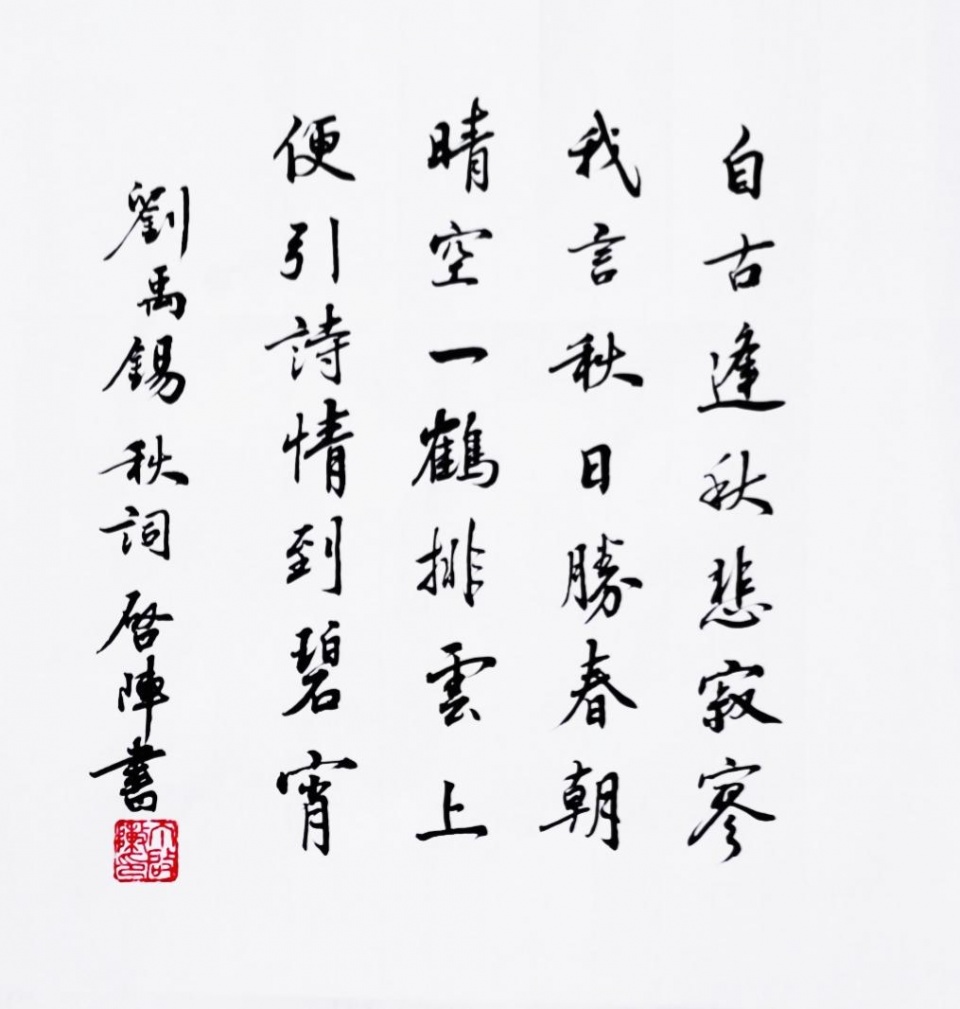 自古逢秋悲寂寥
我言秋日勝春朝
晴空一鶴排雲上
便引詩情到碧宵
劉禹錫秋詞啓陣書